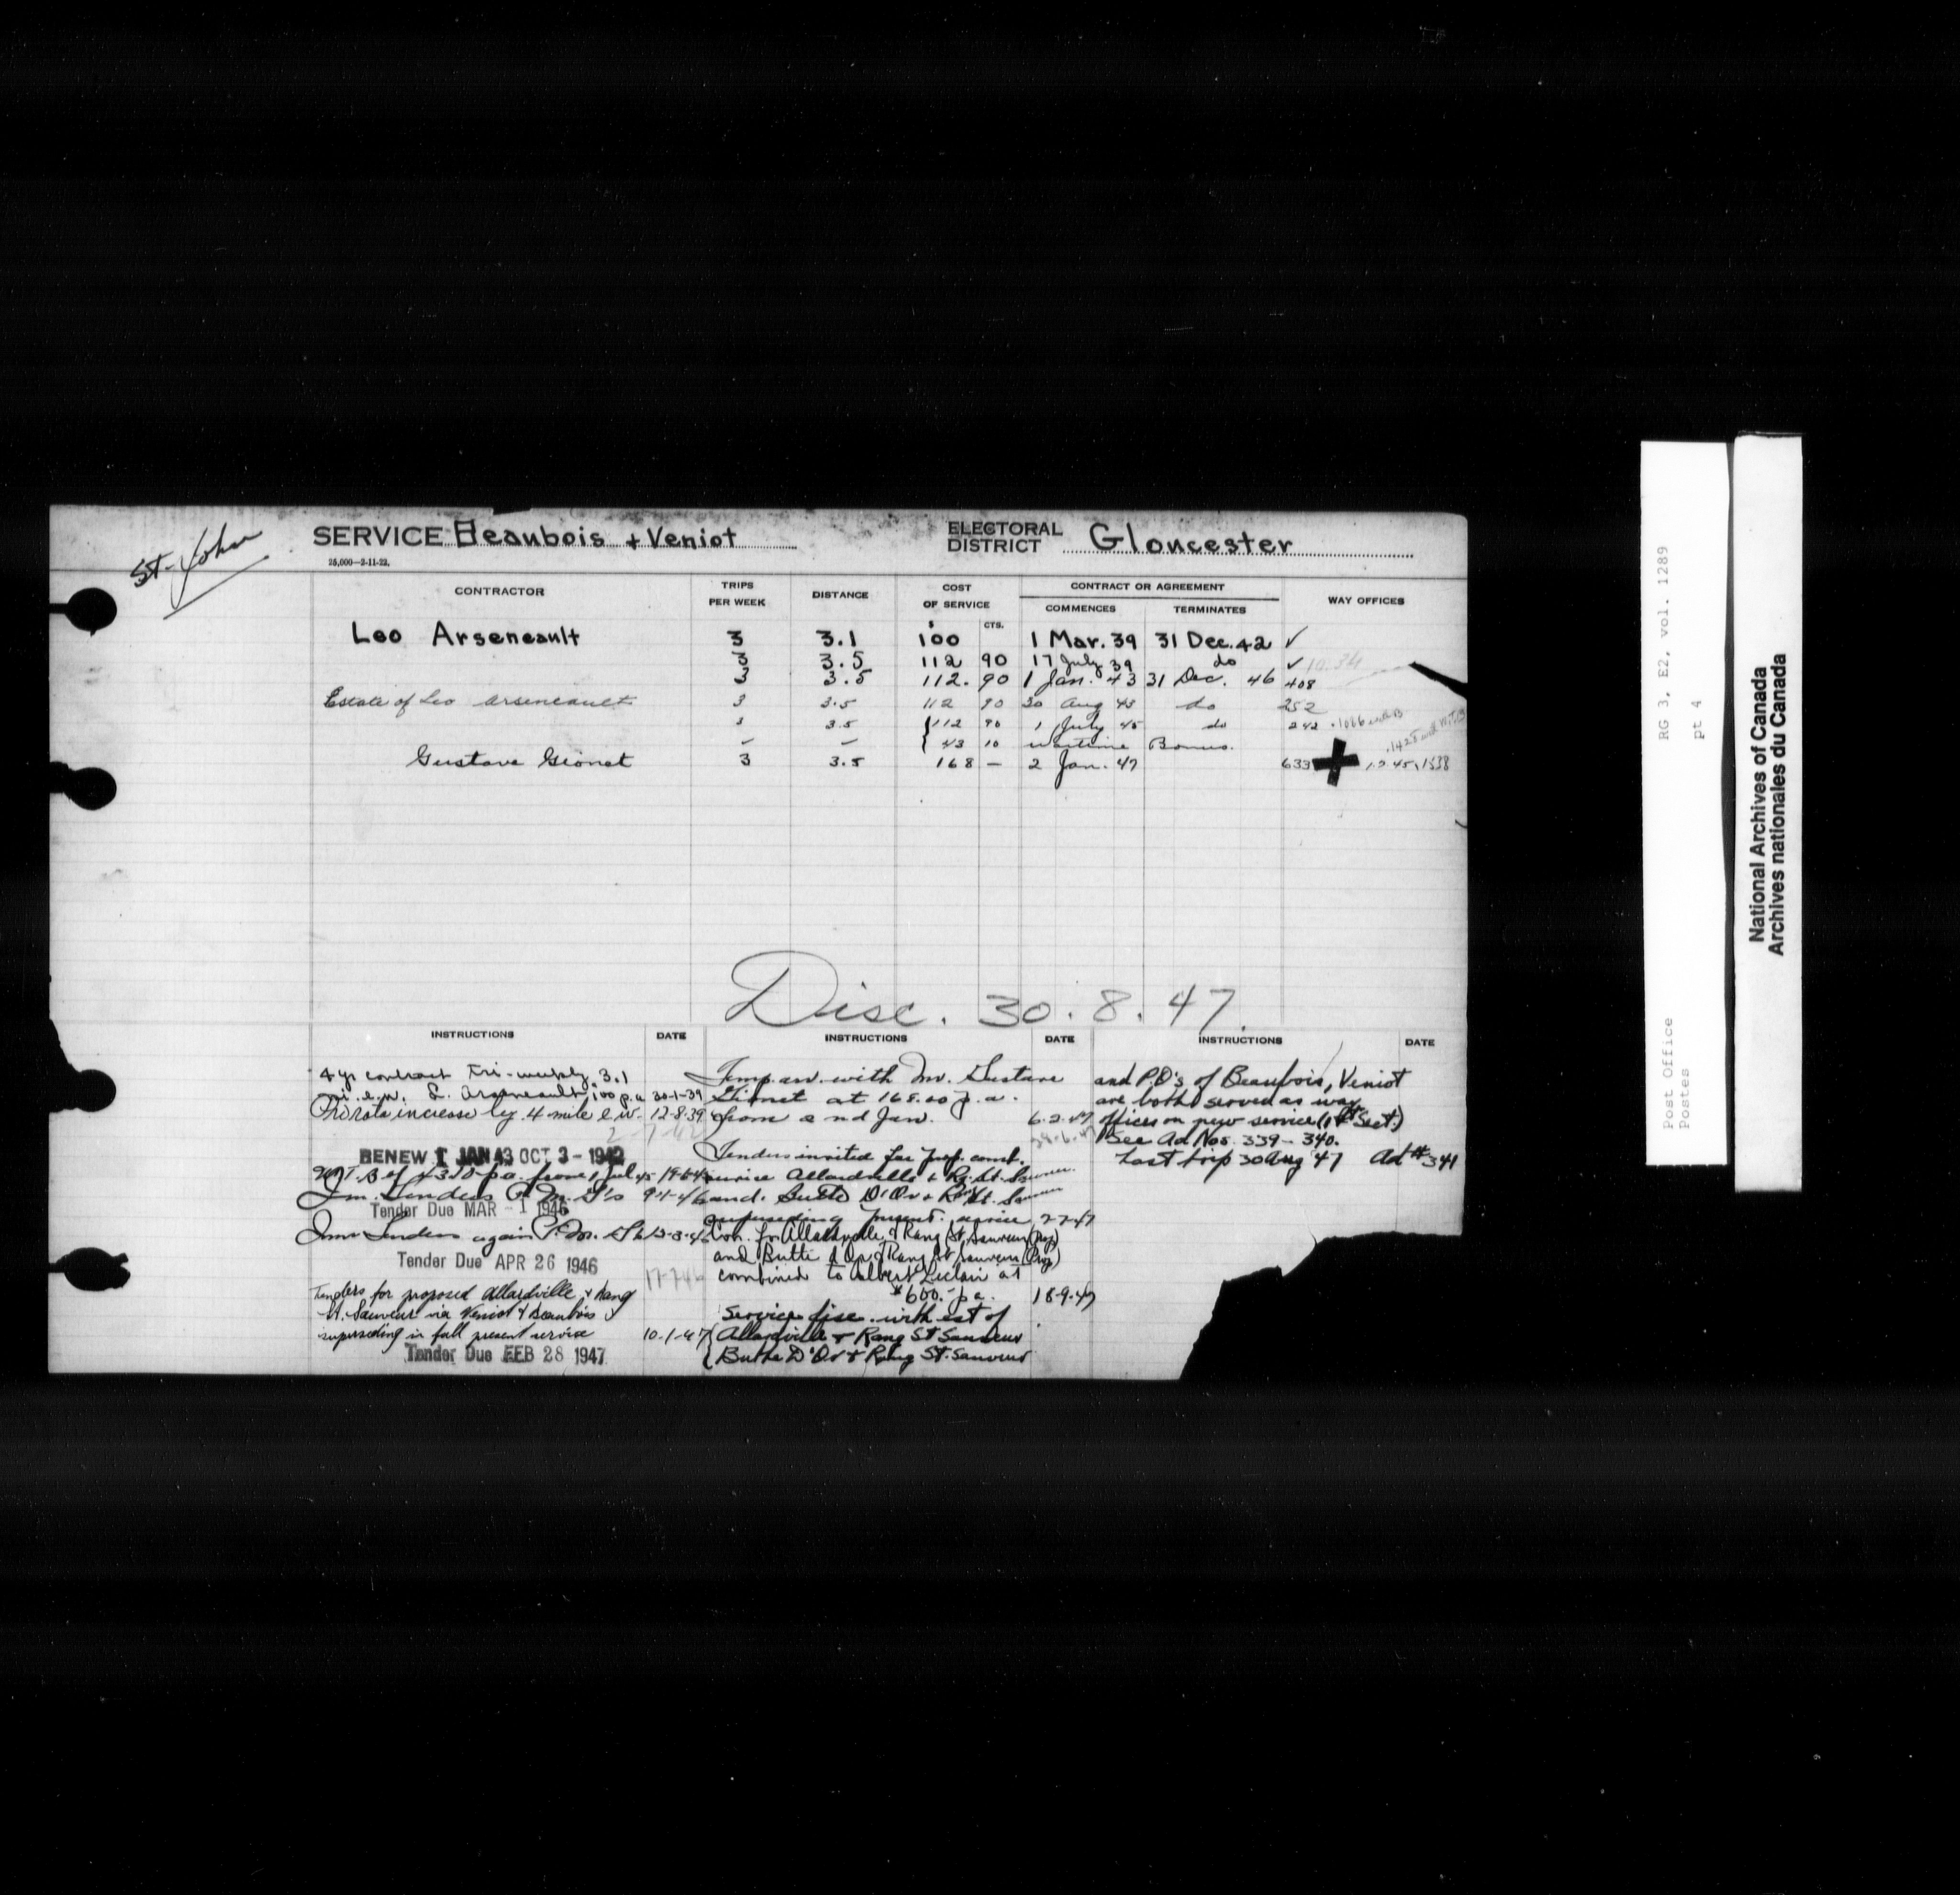 St-John
SERVICE Beaubois + Veniot
ELECTORAL DISTRICT Gloucester
25,000—2-11-22.
CONTRACTOR TRIPS PER WEEK DISTANCE COST OF SERVICE CONTRACT OR AGREEMENT WAY OFFICES
COMMENCES TERMINATES
$ CTS.
Leo Arseneault 3 3.1 100 1 Mar. 39 31 Dec. 42 ✓
3 3.5 112 90 17 July 39 do ✓ 10.34
3 3.5 112. 90 1 Jan. 43 31 Dec. 46 408
Estate of Leo Arseneault 3 3.5 112 90 20 Aug 43 do 252
3 3.5 {112 90 1 July 45 do 242
— — {43 10 wartime Bonus.
Gustave Gionet 3 3.5 168 — 2 Jan. 47 633
Disc. 30.8.47.
INSTRUCTIONS DATE INSTRUCTIONS DATE INSTRUCTIONS DATE
4 yr contract Tri-weekly, 3.1
mi. e.w. L. Arseneault, 100 p.a 30-1-39
Pro rata increase by .4 mile e.w. 12-8-39
RENEW 1 JAN 43 OCT 3 - 1942
W.T.B of 43 10 p.a. from 1 Jul 45
Inv. Tenders P.M. G's 9-1-46
Tender Due MAR - 1 1946
Inv. Tenders again P.M.
Tender Due APR 26 1946
17-7-46
Tenders for proposed Allardville & Rang
St. Sauveur via Veniot & Beaubois
superseding in full present service 10-1-47
Tender Due FEB 28 1947
Temp. arr. with Mr. Gustave
Gionet at 168.00 p.a.
from 2nd Jan. 6-2-47
Tenders invited for prop. const.
service Allardville & Rg. St. Sauveur
and. Butte D'Or & Rang St. Sauveur
superseding present service 2-7-47
Con. for Allardville & Rang St. Sauveur (Prop)
and Butte d'Or & Rang St Sauveur (Prop)
combined to Albert Leclair at
$600. p.a. 18-9-47
Service disc. with est of
{Allardville & Rang St Sauveur
{Butte D'Or & Rang St. Sauveur
and P.O's of Beaubois, Veniot
are both served as way
offices on new service (1st Sect.)
See Ad Nos. 339 - 340.
Last trip 30 Aug 47 Ad # 341
Post Office RG 3, E2, vol. 1289
Postes pt 4
National Archives of Canada
Archives nationales du Canada